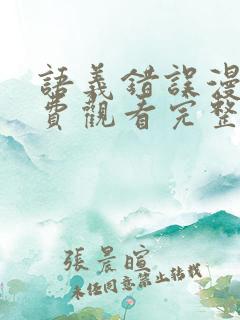 語義錯誤漫
費觀看完整
張晨暄
未經同意禁止轉載